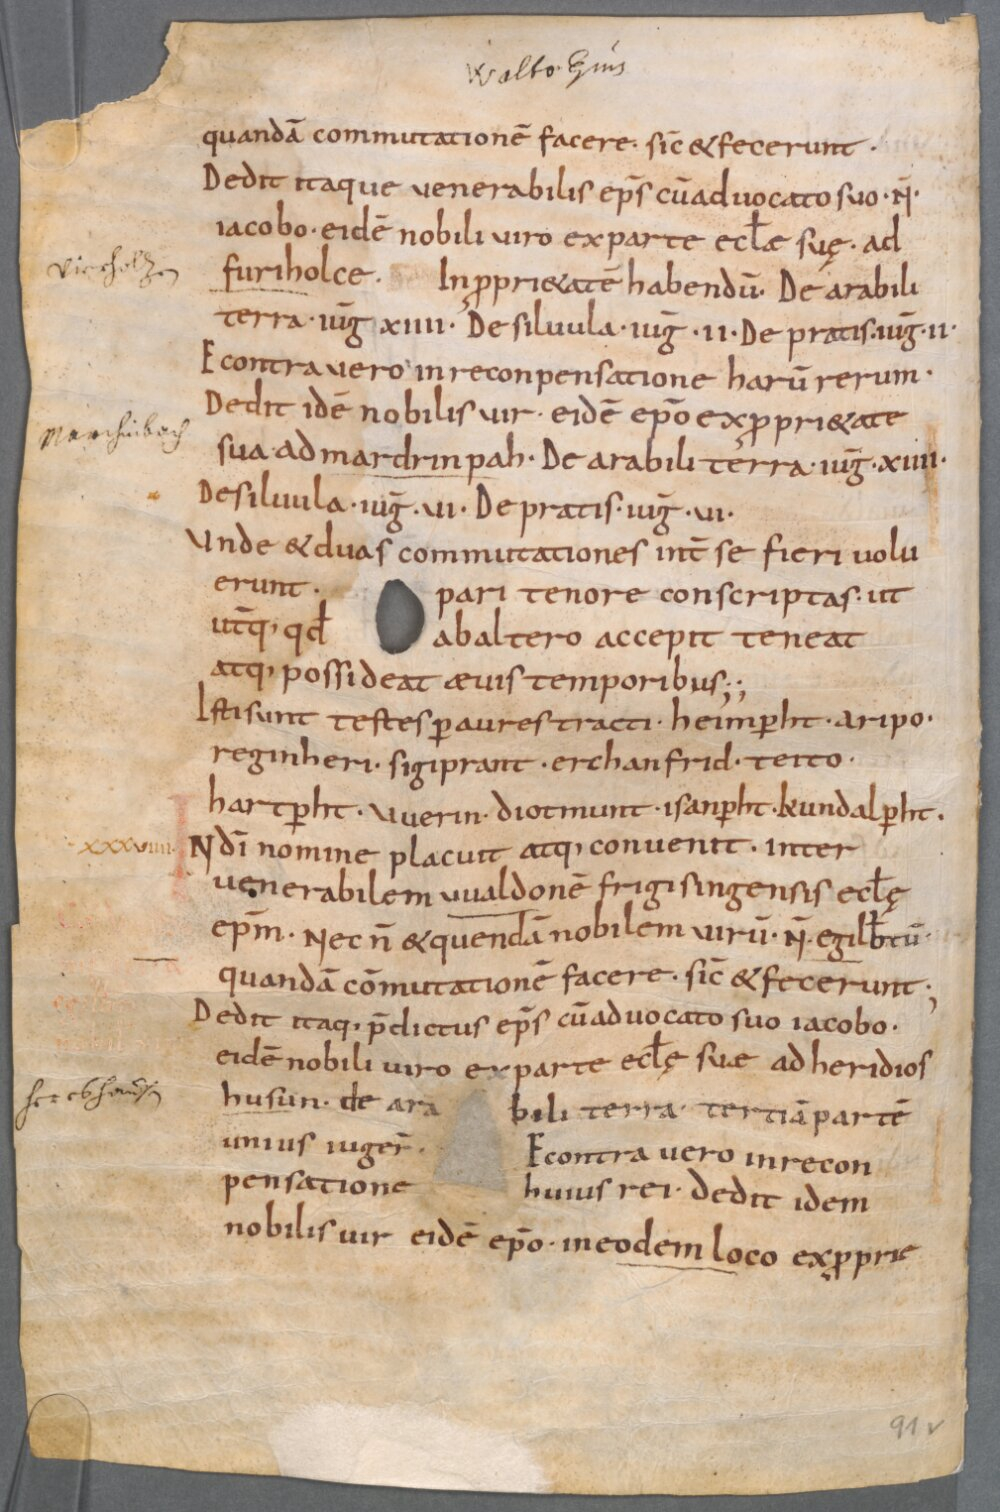 Walto Epūs
quandā commutationē facere· sic̄ & fecerunt·
Dedit itaque venerabilis ep̄s cū advocato suo· N̄·
iacobo· eidē nobili viro ex parte eccł̄æ suę· ad
Viecholzen
furiholce· In ꝓpri&atē habendū· De arabili
terra· iuḡ xiiii· De siluula· iuḡ· ii· De pratis· iuḡ· ii·
E contra vero in reconpensatione harū rerum·
Dedit idē nobilis vir· eidē ep̄o ex ꝓpri&ate
Merchinbach
sua· ad mardrinpah· De arabili terra· iuḡ· xiiii·
De siluula· iuḡ· vi· De pratis· iuḡ· vi·
Unde & duas commutationes int̄ se fieri volu
erunt· pari tenore conscriptas· ut
ut̄q, qd̄ ab altero accepit teneat
atq, possideat ævis temporibus;;
Isti sunt testes ꝑ aures tracti· heimꝑht· aripo·
reginheri· sigiprant· erchanfrid· teito·
hartꝑht· vverin· diotmunt· isanꝑht· kundalꝑht·
xxxviiii· IN dī nomine placuit atq, convenit· inter
venerabilem vvaldonē frigisingensis eccł̄ę
ep̄m· Nec n̄ & quendā nobilem virū· N̄· egilb̄tū·
quandā cōmutationē facere· sic̄ & fecerunt;
Dedit itaq, p̄dictus ep̄s cū advocato suo iacobo·
eidē nobili viro ex parte eccł̄ę suæ ad heridios
husun· de ara bili terra· tertiā partē
unius iuger̄· E contra vero in recon
pensatione huius rei· dedit idem
nobilis vir eidē ep̄o· in eodem loco ex ꝓprie
91v